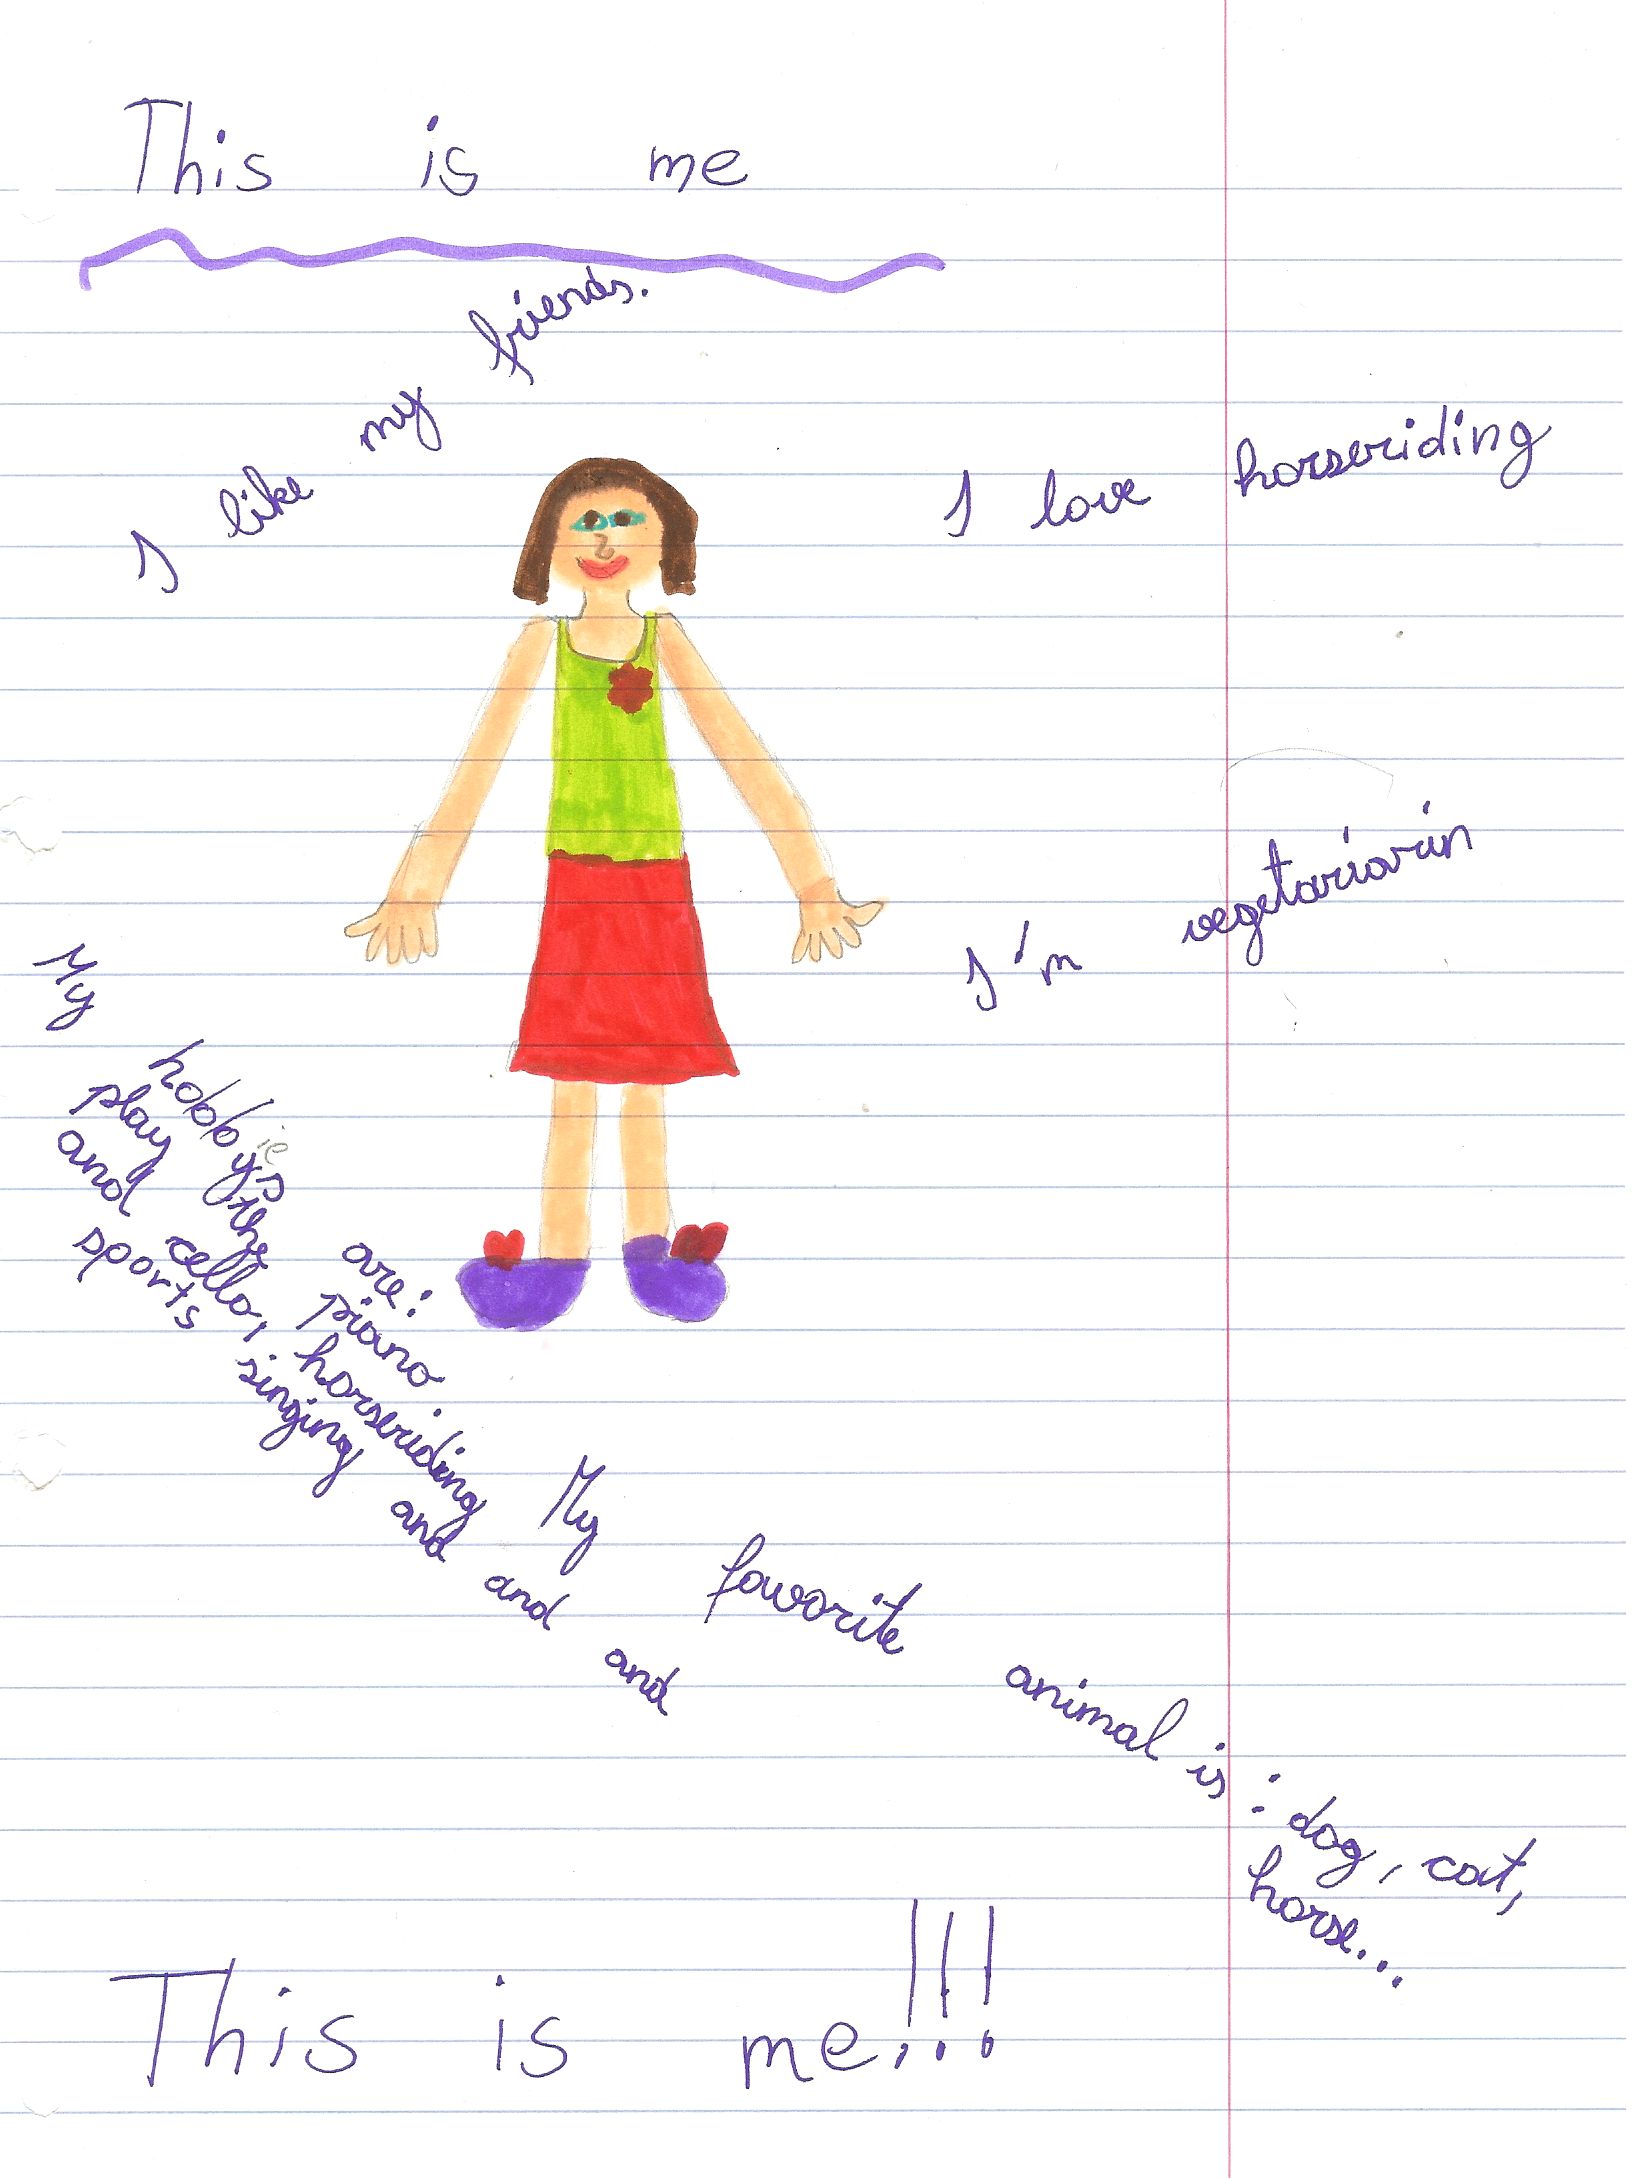 This is me
I like my friends.
I love horseriding
I'm vegetariarin
My hobbys are:
ie
play the piano.
and cello, horseriding
sports singing and and and
My favorite animal is: dog, cat,
horse...
This is me!!!